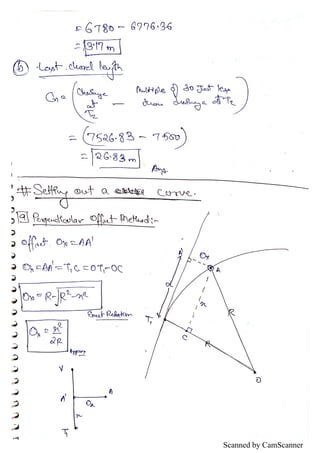 = 6780 - 6776.36
= 3.17 m
(b) Last chord length
Cn = (Chainage at T2 - Multiple of 30 Just less than chainage at T2)
= (7526.83 - 7500)
= 26.83 m
Ans.
# Setting out a curve.
(a) Perpendicular Offset Method:-
offset Ox = AA'
Ox = AA' = T1C = OT1 - OC
Ox = R - √R² - x²
Exact Relation
Ox = x²/2R
Approx
V
A'
A
Ox
x
T1
A'
Ox
A
x
x
T1
R
C
R
O
Scanned by CamScanner